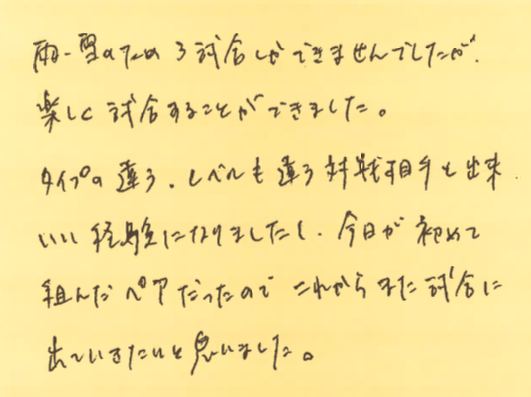 雨・雪のため3試合しかできませんでしたが、
楽しく試合することができました。
タイプの違う、レベルも違う対戦相手と出来
いい経験になりましたし、今日が初めて
組んだペアだったのでこれからまた試合に
出ていきたいと思いました。